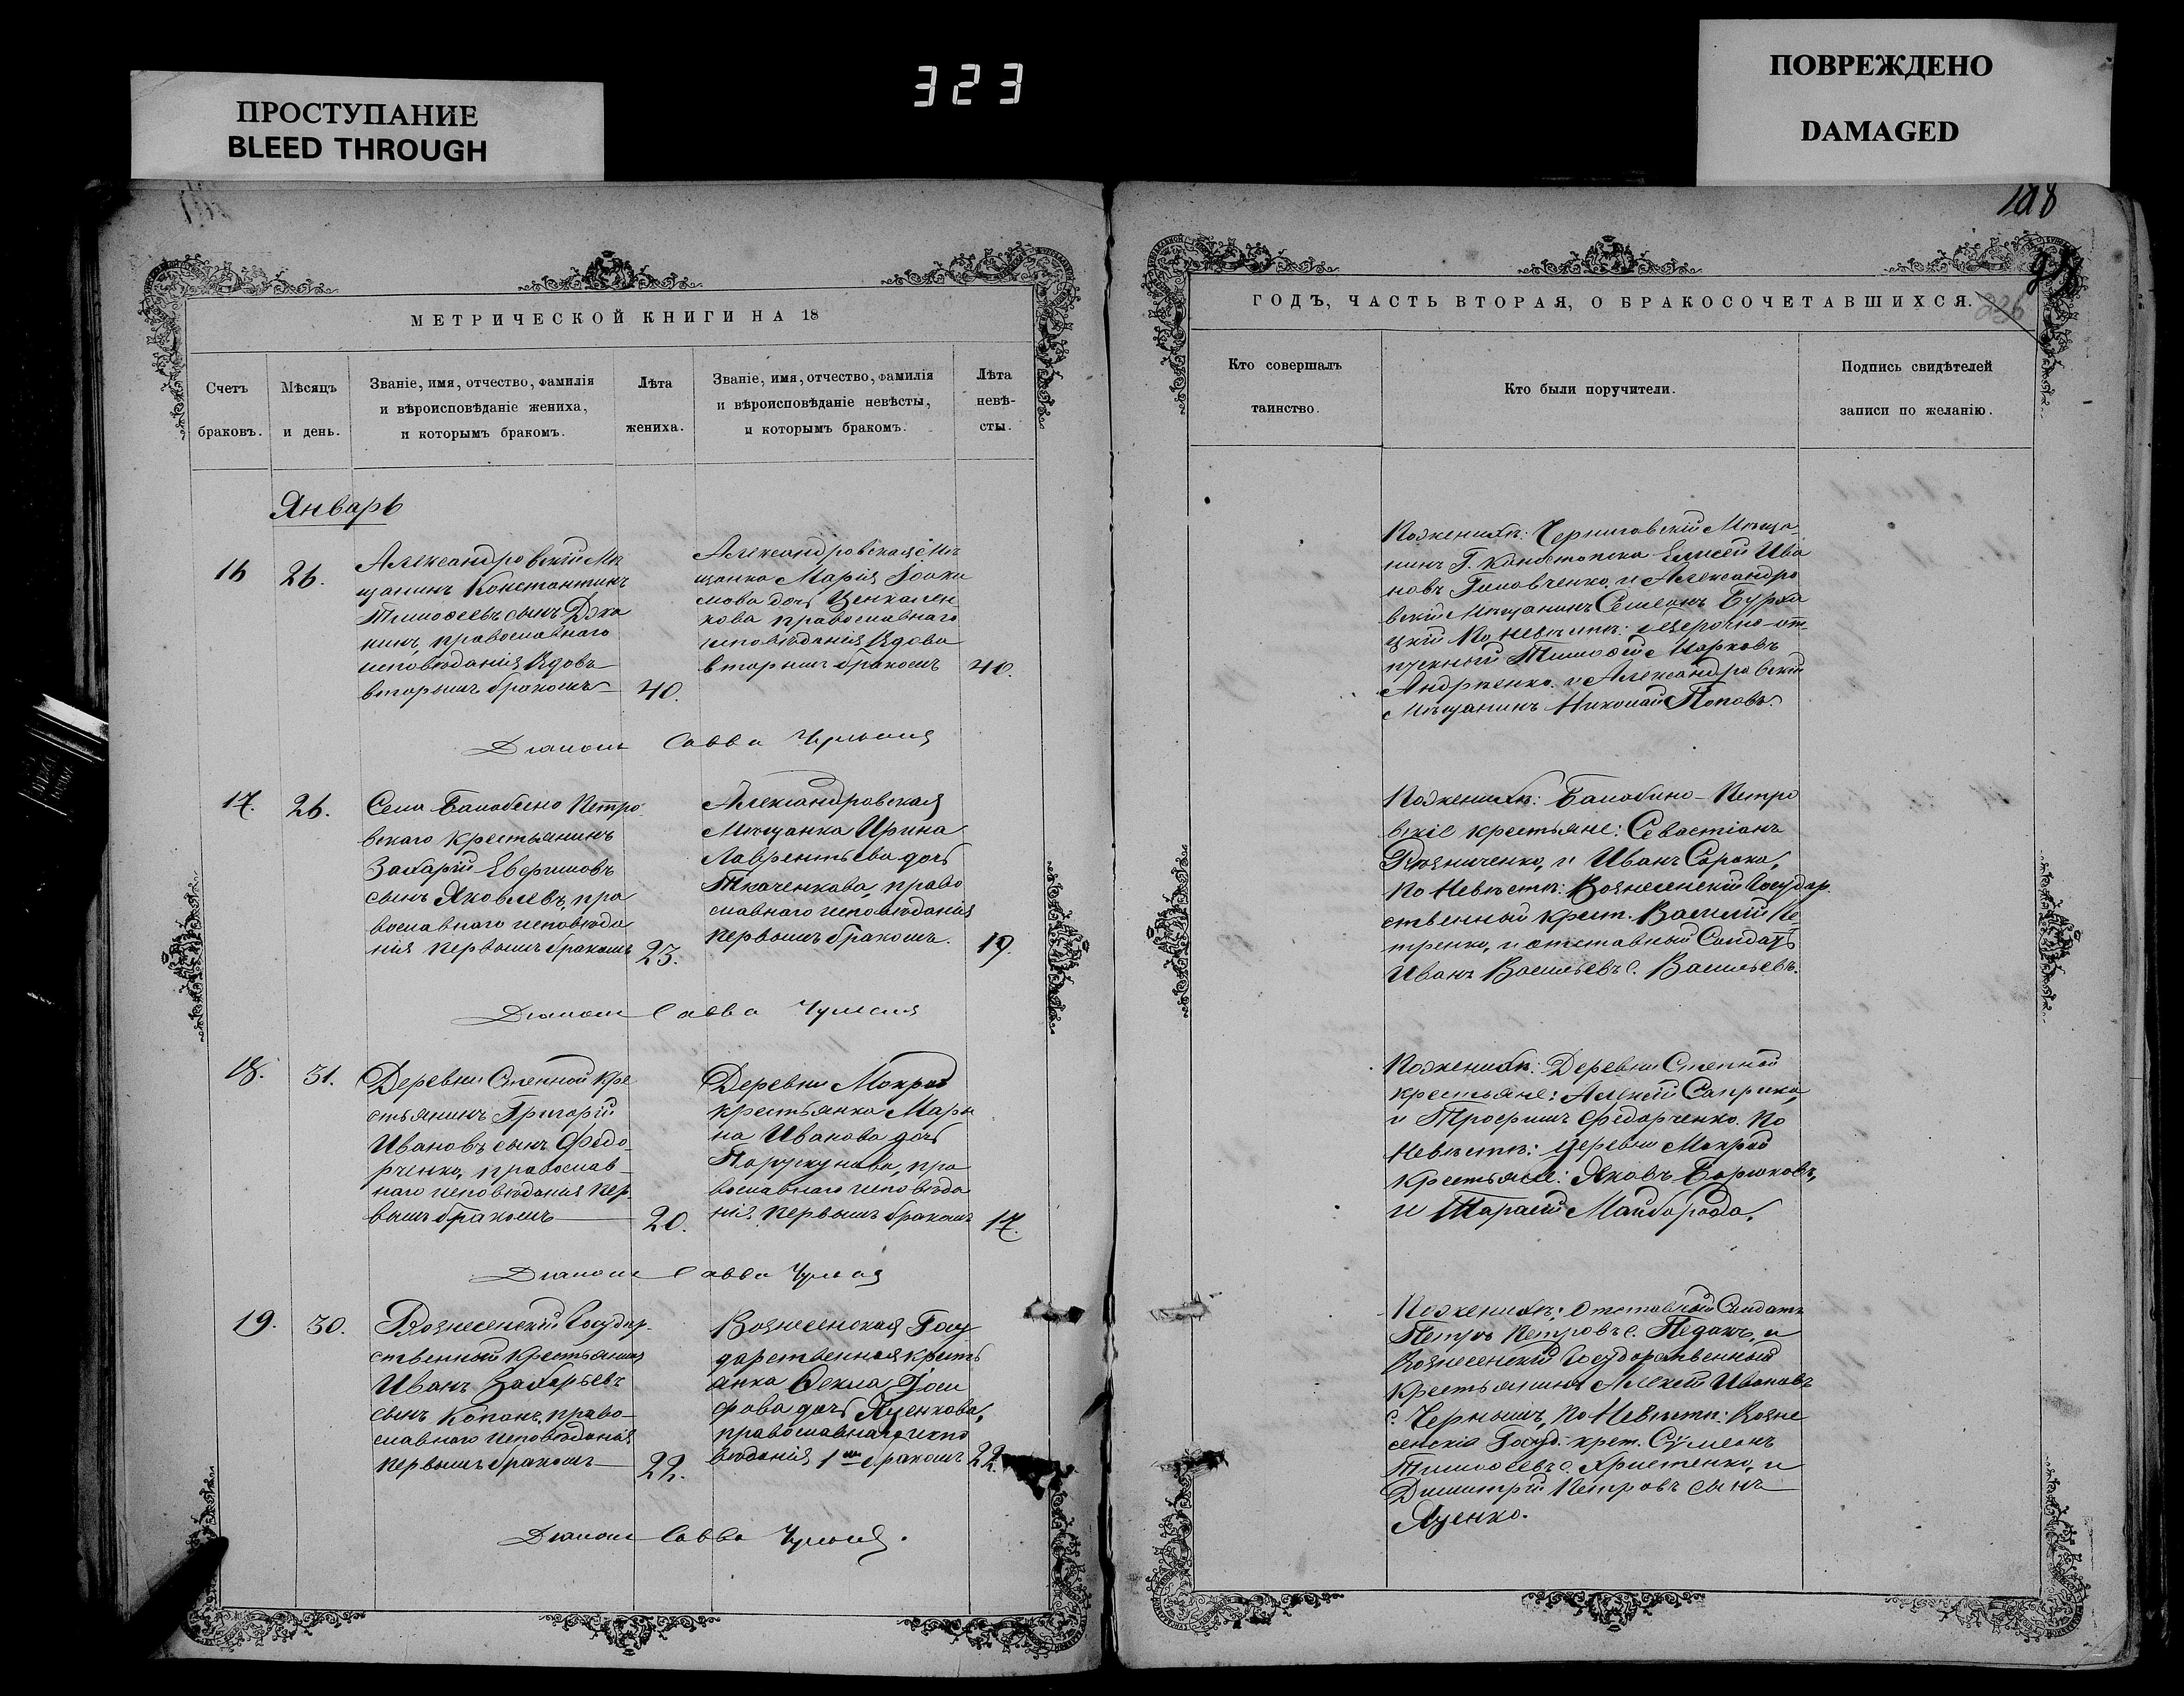 323
ПРОСТУПАНИЕ
BLEED THROUGH
ПОВРЕЖДЕНО
DAMAGED
198
236
МЕТРИЧЕСКОЙ КНИГИ НА 18
Счетъ
браковъ.
Мѣсяцъ
и день.
Званіе, имя, отчество, фамилія
и вѣроисповѣданіе жениха,
и которымъ бракомъ.
Лѣта
жениха.
Званіе, имя, отчество, фамилія
и вѣроисповѣданіе невѣсты,
и которымъ бракомъ.
Лѣта
невѣ-
сты.
Январь
16
26.
Александровскій Мѣ
щанинъ Константинъ
Тимофеевъ сынъ
нинъ, православнаго
исповѣданія Вдовъ
вторымъ бракомъ
40.
Александровская Мѣ
щанка Марія Іоаки
мова дочь Ценкален
кова православнаго
исповѣданія Вдова
вторымъ бракомъ
40.
Савва
17.
26.
Села Балабино Петро
вскаго крестьянинъ
Захарій
сынъ Яковлевъ, пра
вославнаго исповѣда
нія первымъ бракомъ
23.
Александровская
Мѣщанка Ирина
Лаврентьева дочь
Ткаченкова, право
славнаго исповѣданія
первымъ бракомъ.
19.
Савва
18.
31.
Деревни Степной кре
стьянинъ Григорій
Ивановъ сынъ Федо
рченко, православ
наго исповѣданія пер
вымъ бракомъ
20.
Деревни Мокрой
крестьянка Мари
на Иванова дочь
пра
вославнаго исповѣда
нія, первымъ бракомъ
17.
Савва
19.
30.
Вознесенскій Государ
ственный крестьянинъ
Иванъ Захарьевъ
сынъ Копанъ, право
славнаго исповѣданія
первымъ бракомъ
22.
Вознесенская Госу
дарственная кресть
янка Фекла Іоси
фова дочь Яценкова,
православнаго испо
вѣданія 1мъ бракомъ
22.
Савва
ГОДЪ, ЧАСТЬ ВТОРАЯ, О БРАКОСОЧЕТАВШИХСЯ.
Кто совершалъ
таинство.
Кто были поручители.
Подпись свидѣтелей
записи по желанію.
По женихѣ: Черниговскій Мѣща
нинъ Г. Конотопска Елисей Ива
новъ и Александро
вскій Мѣщанинъ Семенъ
По невѣстѣ: от
пускный Тимофей Марковъ
Андрѣенко, и Александровскій
Мѣщанинъ Николай Поповъ.
По женихѣ: Балабино-Петро
вскіе крестьяне: Севастіанъ
и Иванъ Сорока,
По Невѣстѣ: Вознесенскій Государ
ственный крест. Василій Пе
тренко, и отставный Солдатъ
Иванъ Васильевъ с. Васильевъ.
По женихѣ: Деревни Степной
крестьяне: Алексѣй Саприка
и Трофимъ Федорченко. По
Невѣстѣ: Деревни Мокрой
крестьяне: Яковъ Борюковъ,
и Тарасій Майборода.
По женихѣ: Отставный Солдатъ
Петръ Петровъ с. Педанъ, и
Вознесенскій Государственный
крестьянинъ Алексѣй Ивановъ
с. Чернышъ, По Невѣстѣ: Возне
сенскіе Госуд. крест. Сѵмеонъ
Тимофеевъ с. Христенко, и
Димитрій Петровъ сынъ
Яценко.